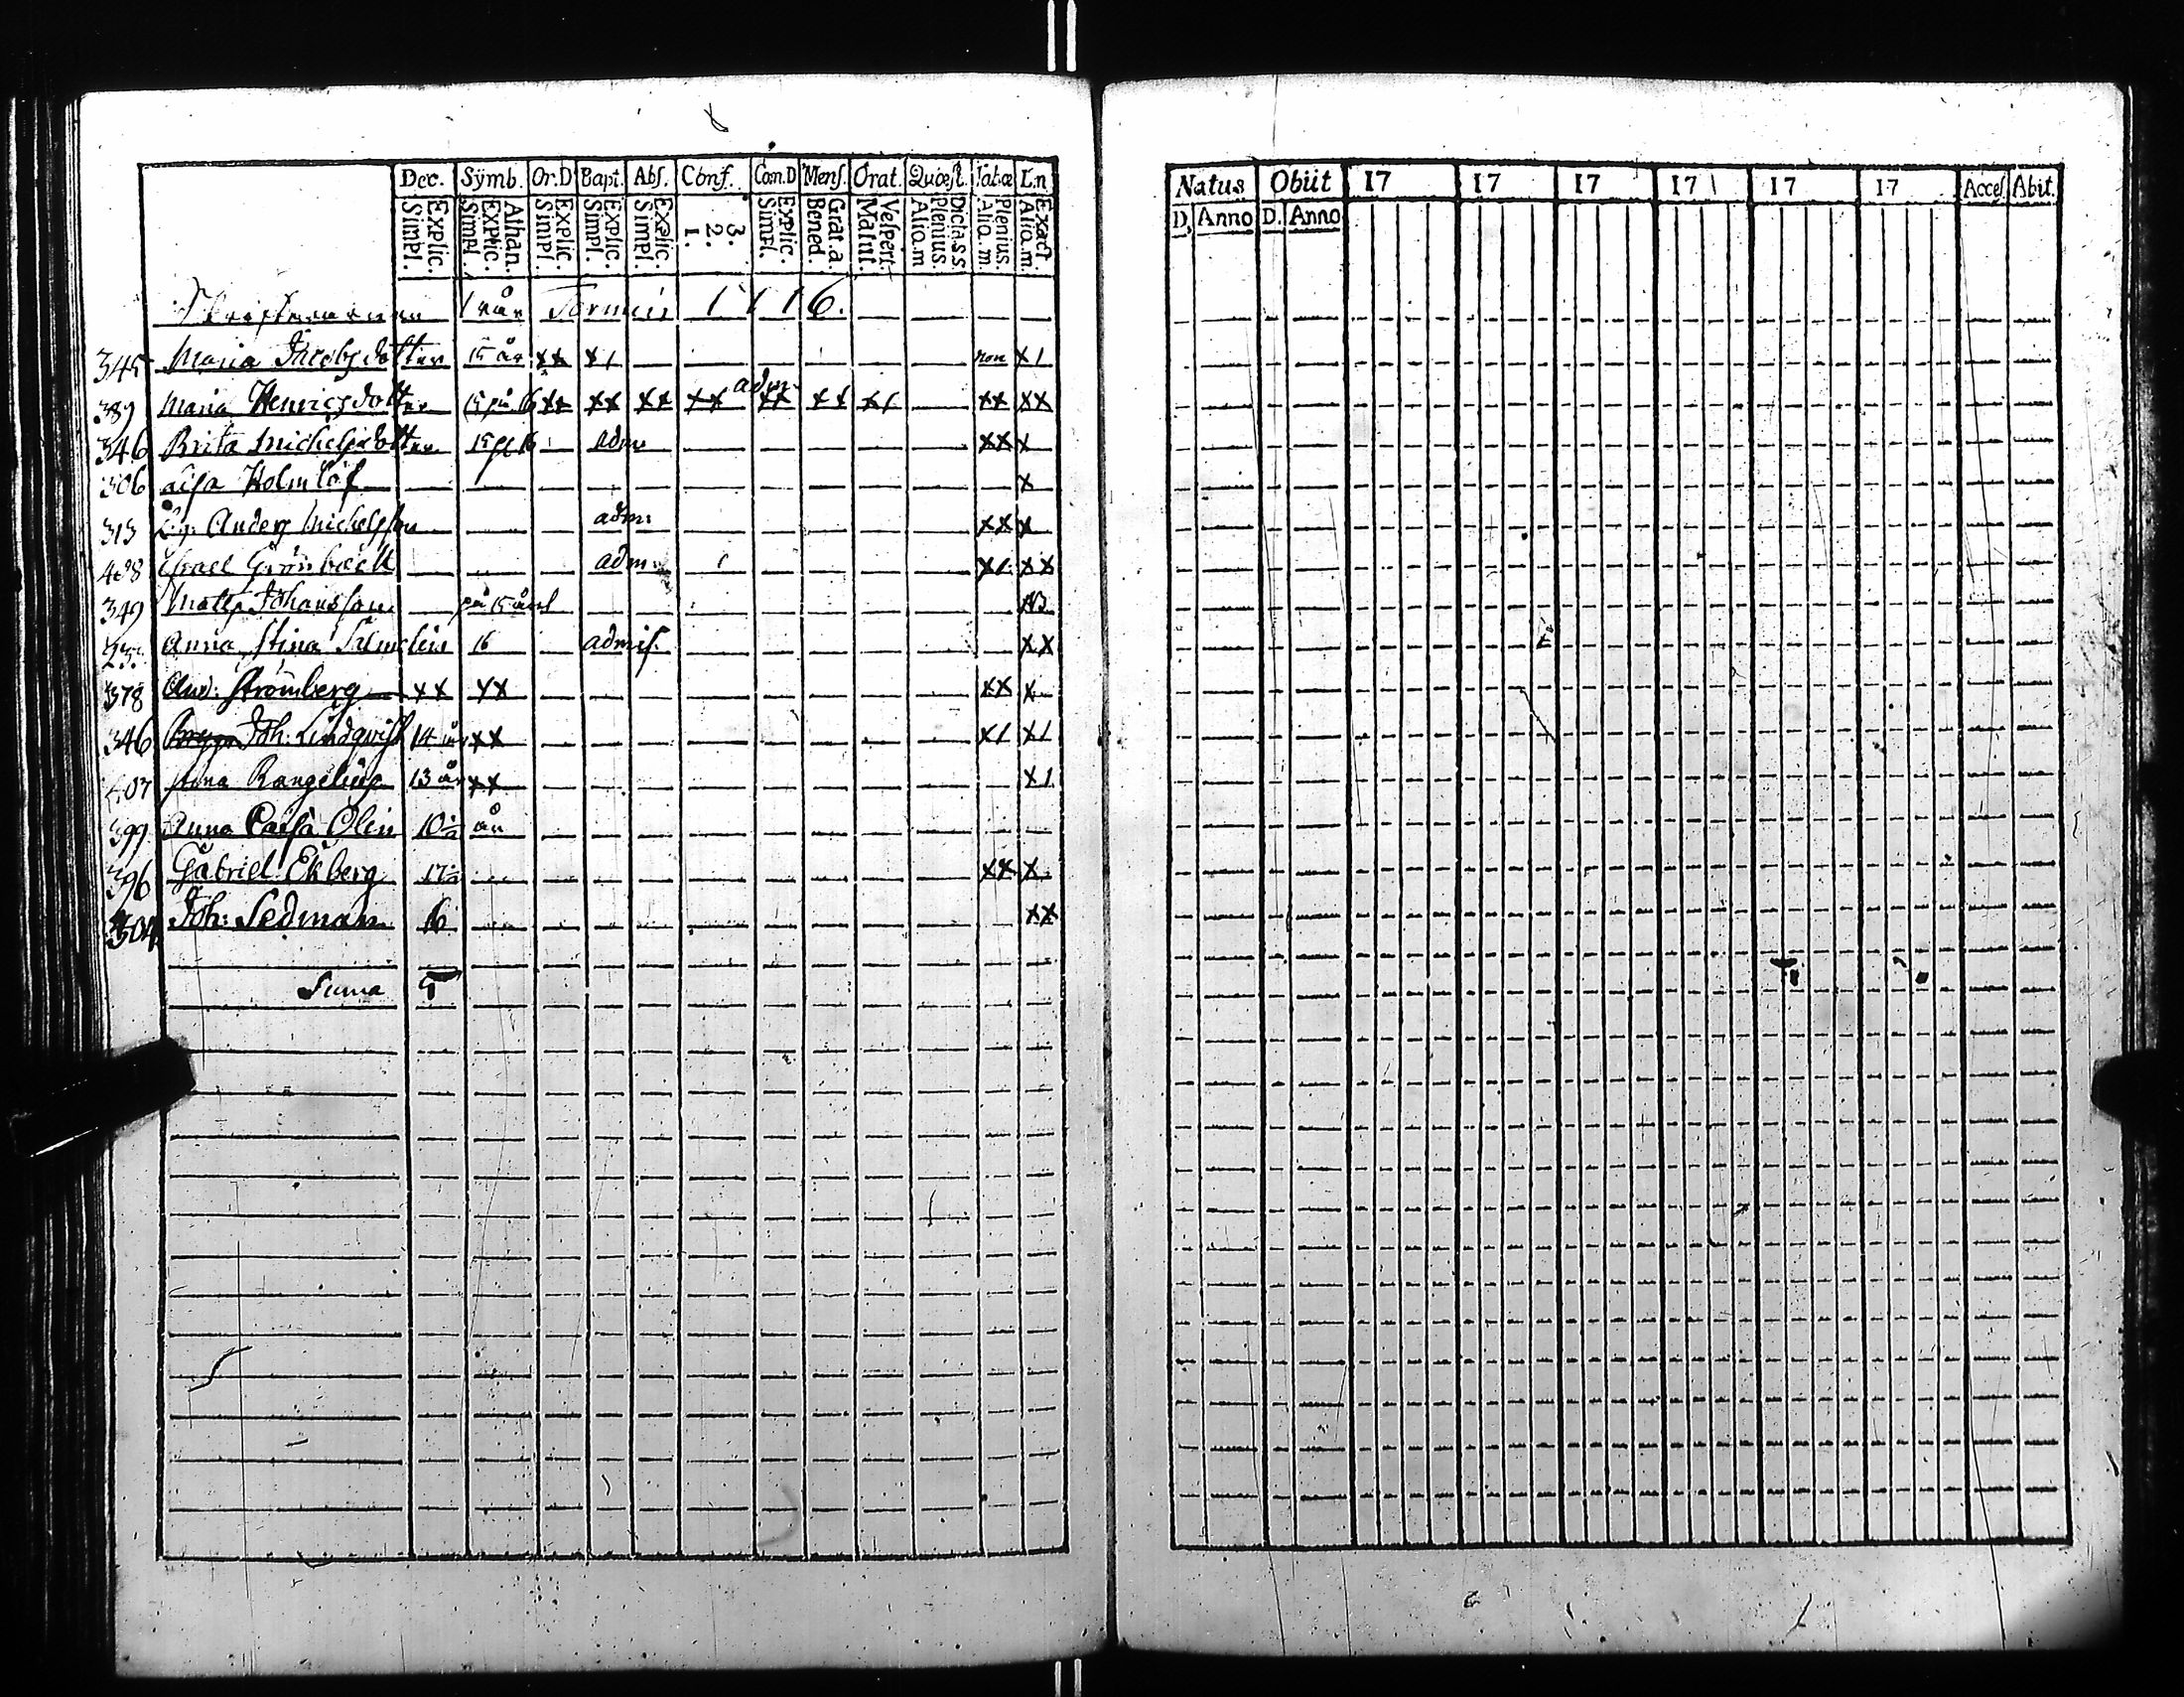 Dec. Symb. Or.D Bapt. Abs. Conf. Com.D Mens. Orat. Quæst. Tabæ L.n
Explic. Simpl. Athan. Explic. Simpl. Explic. Simpl. Explic. Simpl. Explic. Simpl. 3. 2. 1. Explic. Simpl. Grat. a. Bened. Vespert. Matut. Dicta S.S. Plenius. Alia.m Plenius. Alia.m. Exact. Alia.m.
Termin
345 Maria Jacobsdotter 15 år xx x1 non x1
389 Maria Henricsdotter 15 på 16 xx xx xx xx adm. xx xx x1 xx xx
346 Brita Michelsdotter 15 på 16 adm xx x
306 Caisa Holmlöf x
313 Anders Michelsson adm: xx x
408 Israel Grönbäck adm: x1 xx
349 Matts Johansson på 15 året
Anna Stina 16 admis. xx
378 And: Strömberg xx xx xx x
346 Joh: Lindqvist 14 år xx x1 x1
407 Stina 13 år xx x1
399 Anna Caisa Olin 10 år
396 Gabriel Ekberg 17 xx x
304 Joh: Sedman 16 xx
Suma
Natus Obiit 17 17 17 17 17 17 Acces. Abit.
D. Anno D. Anno